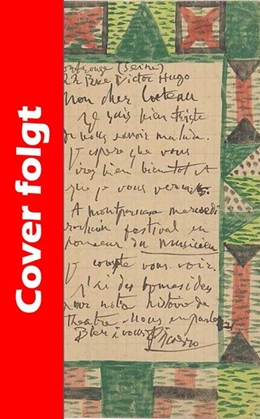 Cover folgt
ontrouge (Seine)
22 Rue Victor Hugo
mon cher Cocteau
je suis bien triste
de vous savoir malade.
J'espere que vous
irez bien bientot et
que je vous
A montparnasse mercredi
prochain festival en
honneur du musicien
compte vous voir.
J'ai des idees
pour notre histoire de
theatre Nous en
Bien à vous Picasso